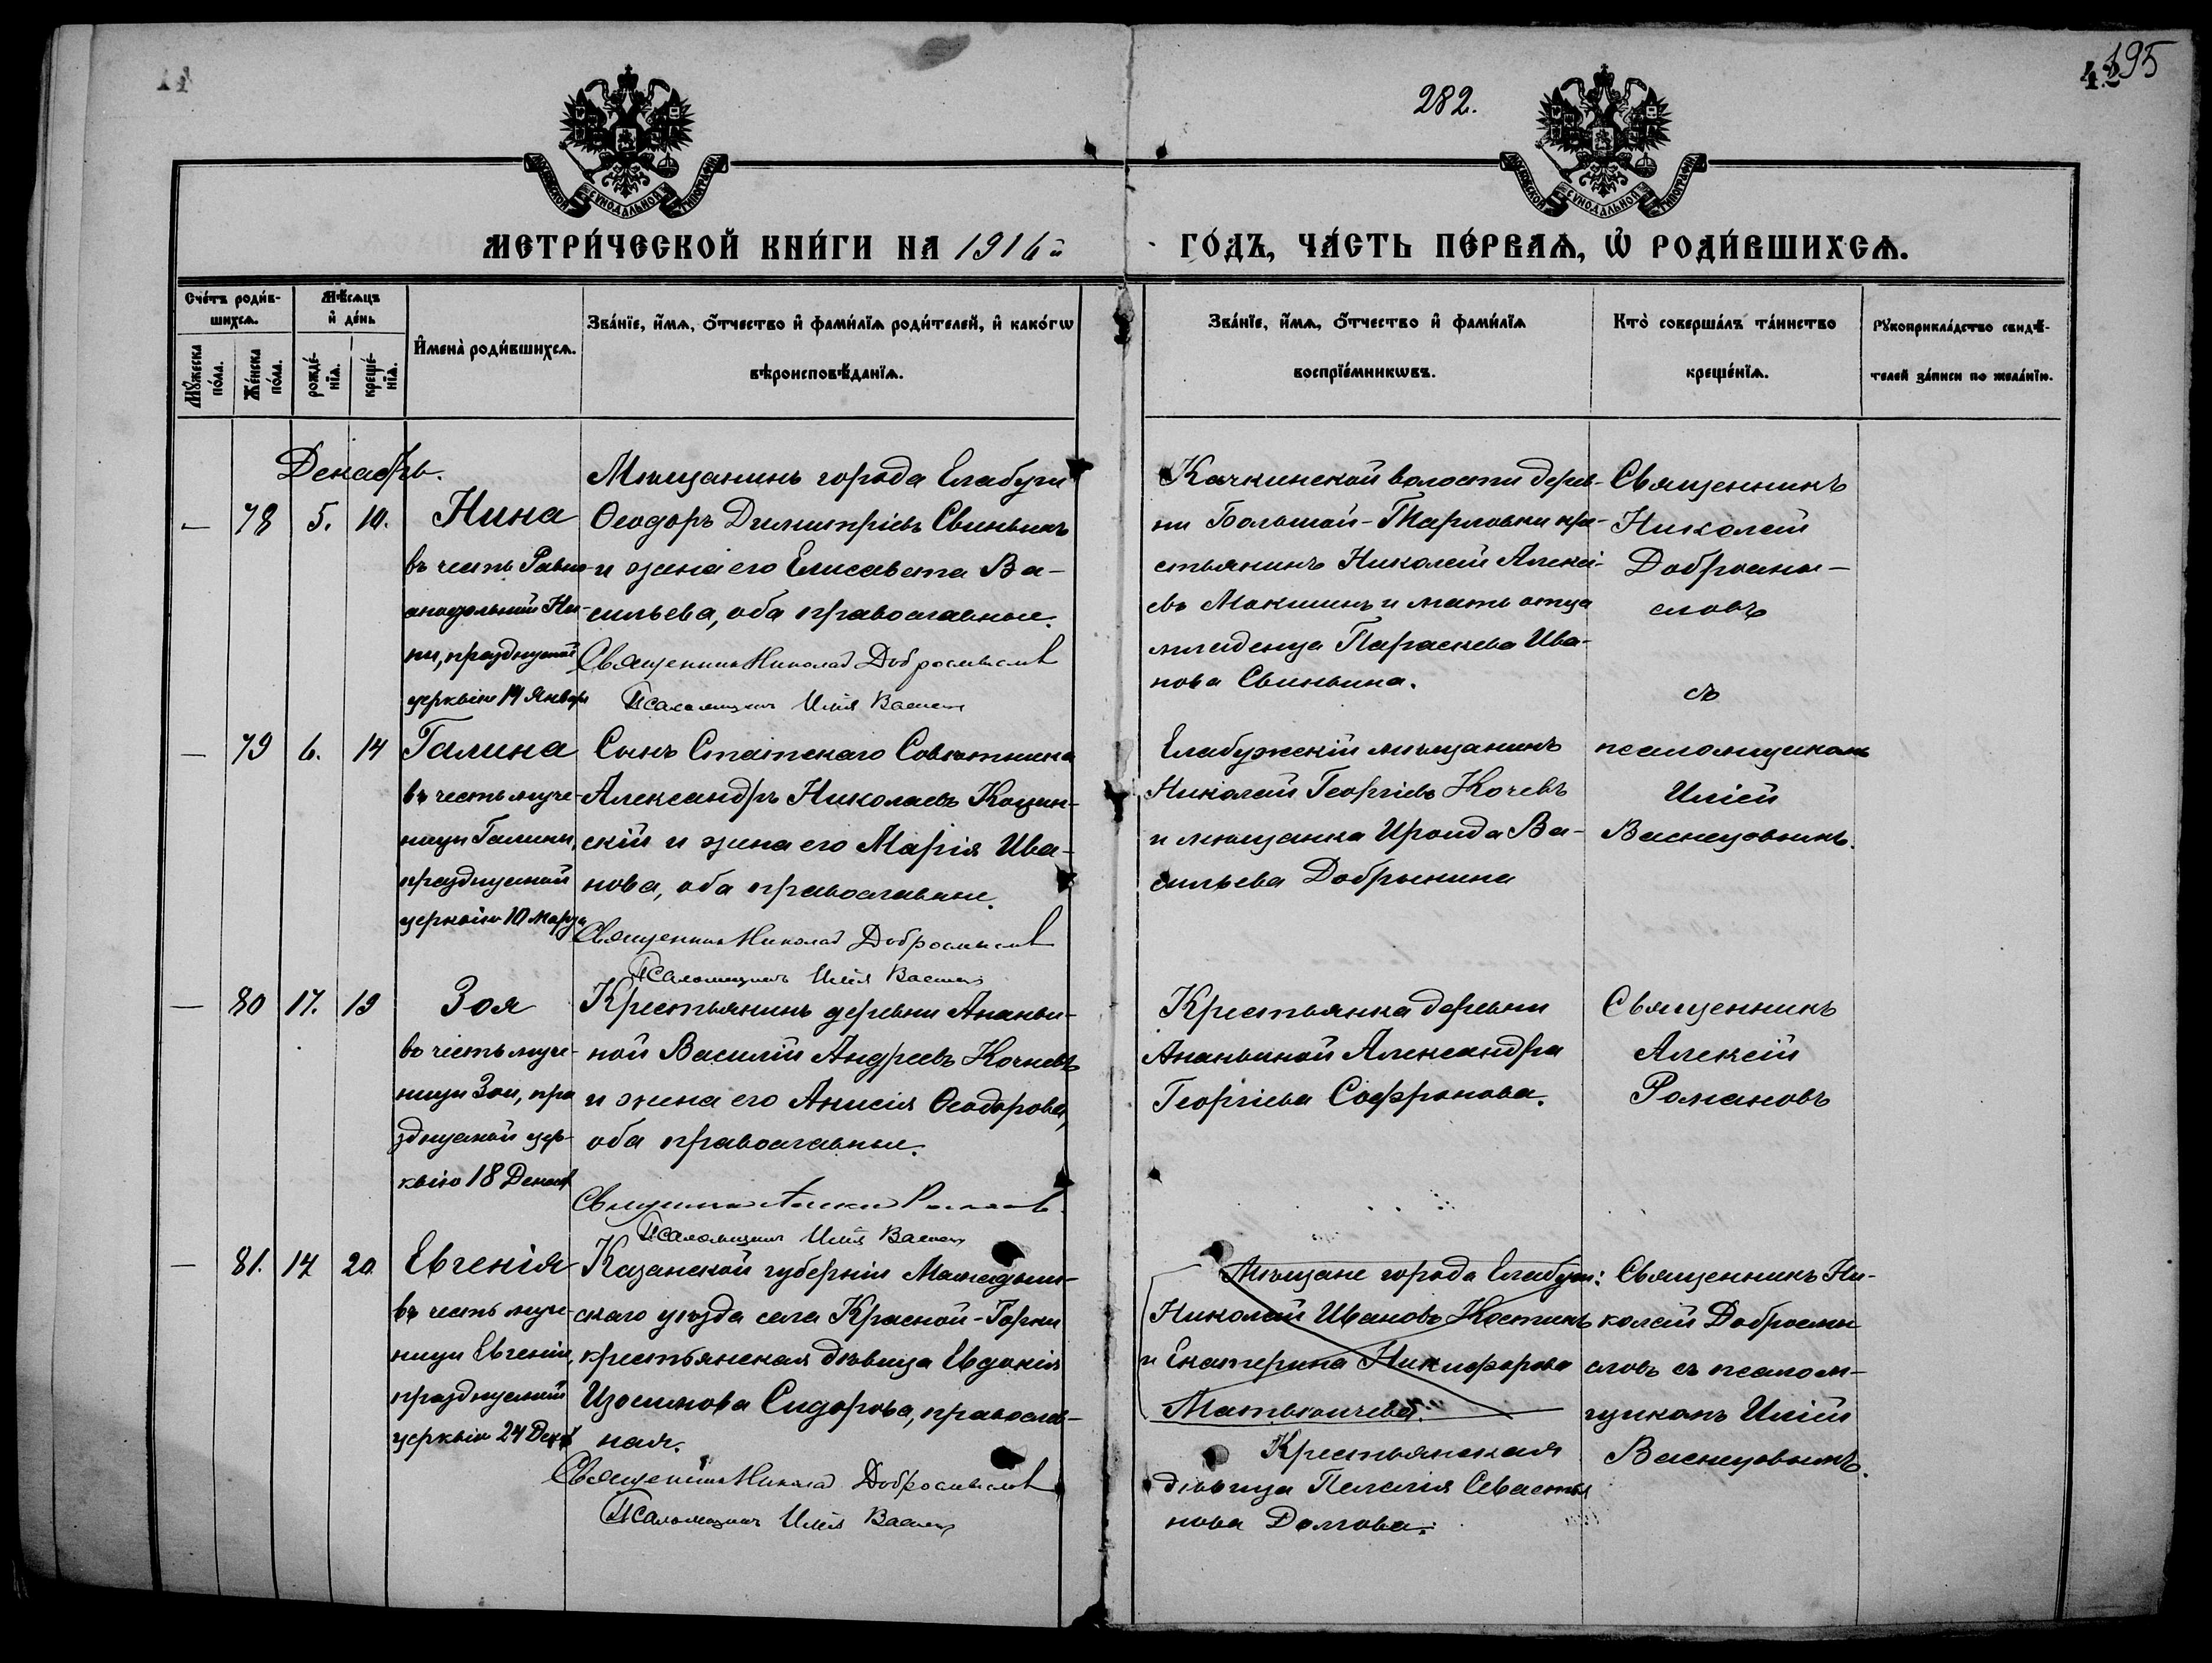 14
282.
195
МОСКОВСКОЙ СѴНОДАЛЬНОЙ ТИПОГРАФІИ
МОСКОВСКОЙ СѴНОДАЛЬНОЙ ТИПОГРАФІИ
МЕТРИ́ЧЕСКОЙ КНИ́ГИ НА 1916й
ГО́ДЪ, ЧА́СТЬ ПЕ́РВАѦ, Ѡ҆ РОДИ́ВШИХСѦ.
Сче́тъ роди́в-
шихсѧ.
Мꙋ́жеска
по́ла.
Же́нска
по́ла.
Мѣ́сѧцъ
и҆ де́нь
рожде́-
нїѧ.
креще́-
нїѧ.
И҆мена̀ роди́вшихсѧ.
Зва́нїе, и҆́мѧ, ѻ҆́тчество и҆ фами́лїѧ роди́телей, и҆ како́гѡ
вѣроисповѣ́данїѧ.
Зва́нїе, и҆́мѧ, ѻ҆́тчество и҆ фами́лїѧ
воспрїе́мникѡвъ.
Кто̀ соверша́лъ та́инство
креще́нїѧ.
Рꙋкоприкла́дство свидѣ́-
телей за́писи по жела́нїю.
Декабрь.
— 78 5. 10. Нина
въ честь Равно-
апостольной Ни-
ны, празднуемой
церковію 14 Января
Мѣщанинъ города Елабуги
Ѳеодоръ Димитріевъ Свиньинъ
и жена его Елисавета Ва-
сильева, оба православные.
Священникъ Николай Добросмысловъ
Псаломщикъ Илія Васнецовъ
Качкинской волости дерев-
ни Большой-Тарловки кре-
стьянинъ Николай Алексѣ-
евъ Мокшинъ и мать отца
младенца Параскева Ива-
нова Свиньина.
Священникъ
Николай
Добросмы-
словъ
съ
псаломщикомъ
Иліей
Васнецовымъ.
— 79 6. 14 Галина
въ честь муче-
ницы Галины,
празднуемой
церковію 10 марта
Сынъ Статскаго Совѣтника
Александръ Николаевъ
и жена его Марія Ива-
нова, оба православные.
Священникъ Николай Добросмысловъ
Псаломщикъ Илія Васнецовъ
Елабужскій мѣщанинъ
Николай Георгіевъ Кочевъ
и мѣщанка Ираида Ва-
сильева Добрынина
— 80 17. 19 Зоя
въ честь муче-
ницы Зои, пра
зднуемой цер-
ковію 18 Декаб
Крестьянинъ деревни Ананьи-
ной Василій Андреевъ Кочневъ
и жена его Анисія Ѳеодорова,
оба православные.
Священникъ Алексій Романовъ
Псаломщикъ Илія Васнецовъ
Крестьянка деревни
Ананьиной Александра
Георгіева Софронова.
Священникъ
Алексій
Романовъ
— 81. 17 20. Евгенія
въ честь муче-
ницы Евгеніи,
празднуемой
церковію 24 Декаб
Казанской губерніи Мамадыш-
скаго уѣзда села Красной-Горки
крестьянская дѣвица Евдокія
Изосимова Сидорова, православ-
ная.
Священникъ Николай Добросмысловъ
Псаломщикъ Илія Васнецовъ
Мѣщане города Елабуги:
Николай Ивановъ Костинъ
и Екатерина Никифорова
Крестьянская
дѣвица Пелагія Севастья
нова Долгова.
Священникъ Ни-
колай Добросмы
словъ съ псалом-
щикомъ Иліей
Васнецовымъ.